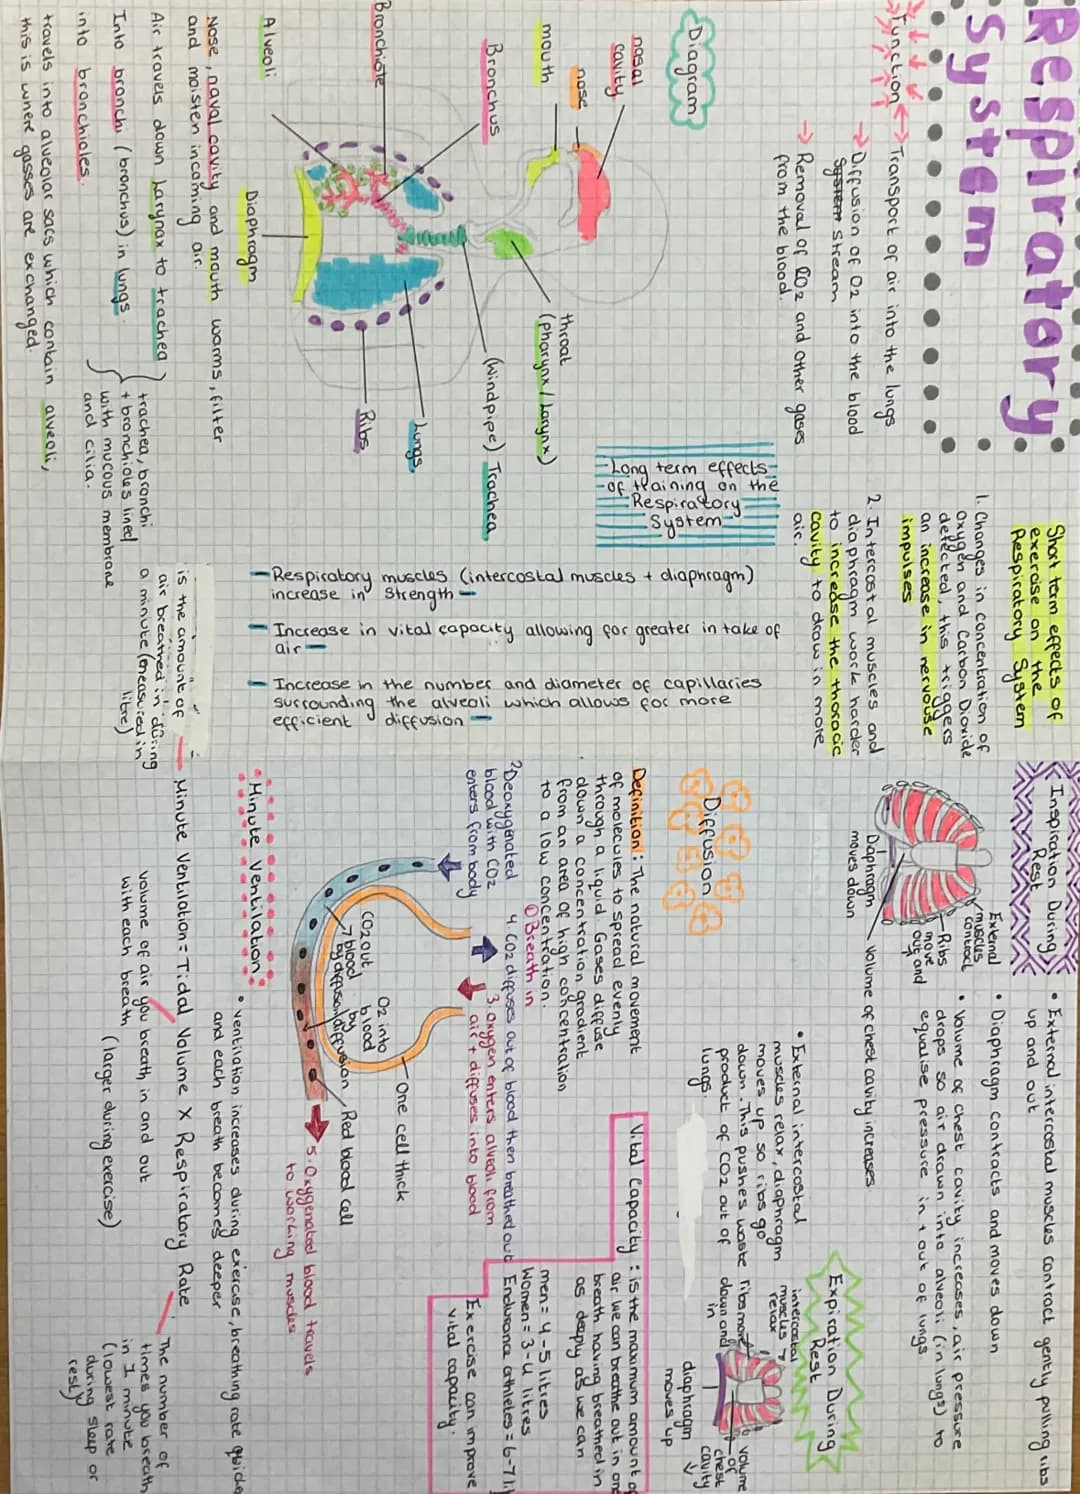 Respiratary
System
Function → Transport of air into the lungs
→ Diffusion of O2 into the blood
system stream
→ Removal of CO2 and other gases
from the blood.
Diagram
nasal
cavity
nose
mouth
Bronchus
Bronchiole
Alveoli
throat
(pharynx/Larynx)
(windpipe) Trachea
Lungs
Ribs
Diaphragm
Nose, naval cavity and mouth warms, filter
and moisten incoming air.
Air travels down Larynax to trachea
Into bronchi (bronchus) in lungs.
into bronchioles.
travels into alveolar sacs which contain alveoli,
this is where gasses are exchanged.
trachea, bronchi
+ bronchioles lined
with mucous membrane
and cilia.
Short term effects of
exercise on the
Respiratory System
1. Changes in concentration of
oxygen and Carbon Dioxide
detected, this triggers
an increase in nervouse
impulses
2. Intercostal muscles and
diaphragm work harder
to increase the thoracic
cavity to draw in more
air.
Long term effects
of training on the
Respiratory
System
- Respiratory muscles (intercostal muscles + diaphragm)
increase in strength -
- Increase in vital capacity allowing for greater in take of
air -
- Increase in the number and diameter of capillaries
surrounding the alveoli which allows for more
efficient diffusion -
Inspiration During
Rest
• External intercostal muscles contract gently pulling ribs
up and out
• Diaphragm contracts and moves down
• Volume of chest cavity increases, air pressure
drops so air drawn into alveoli (in lungs) to
equalise pressure in + out of lungs
External
muscles
contract
Ribs
move
out and
Diaphragm
moves down
volume of chest cavity increases
Expiration During
Rest
• External intercostal
muscles relax, diaphragm
moves up so ribs go
down. This pushes waste
product of CO2 out of
lungs.
intercostal
muscles
relax
ribs move
down and
in
volume
of
chest
cavity ↓
diaphragm
moves up
Diffusion
Definition: The natural movement
of molecules to spread evenly
through a liquid. Gases diffuse
down a concentration gradient
from an area of high concentration
to a low concentration.
① Breath in
2 Deoxygenated
blood with CO2
enters from body
4. CO2 diffuses out of blood then breathed out
3. oxygen enters alveoli from
air + diffuses into blood
CO2 out
blood
by diffusion
O2 into
blood
by
diffusion
One cell thick
Red blood cell
5. Oxygenated blood travels
to working muscles
Vital Capacity: is the maximum amount of
air we can breathe out in one
breath having breathed in
as deeply as we can
men = 4-5 litres
women = 3-4 litres
Endurance athletes = 6-7 li
Exercise can improve
vital capacity.
Minute Ventilation
• ventilation increases during exercise, breathing rate quicke
and each breath becomes deeper
Minute Ventilation = Tidal Volume X Respiratory Rate
is the amount of
air breathed in during
a minute (measured in
litre)
volume of air you breath in and out
with each breath
(larger during exercise)
The number of
times you breath
in 1 minute
(lowest rate
during sleep or
rest)